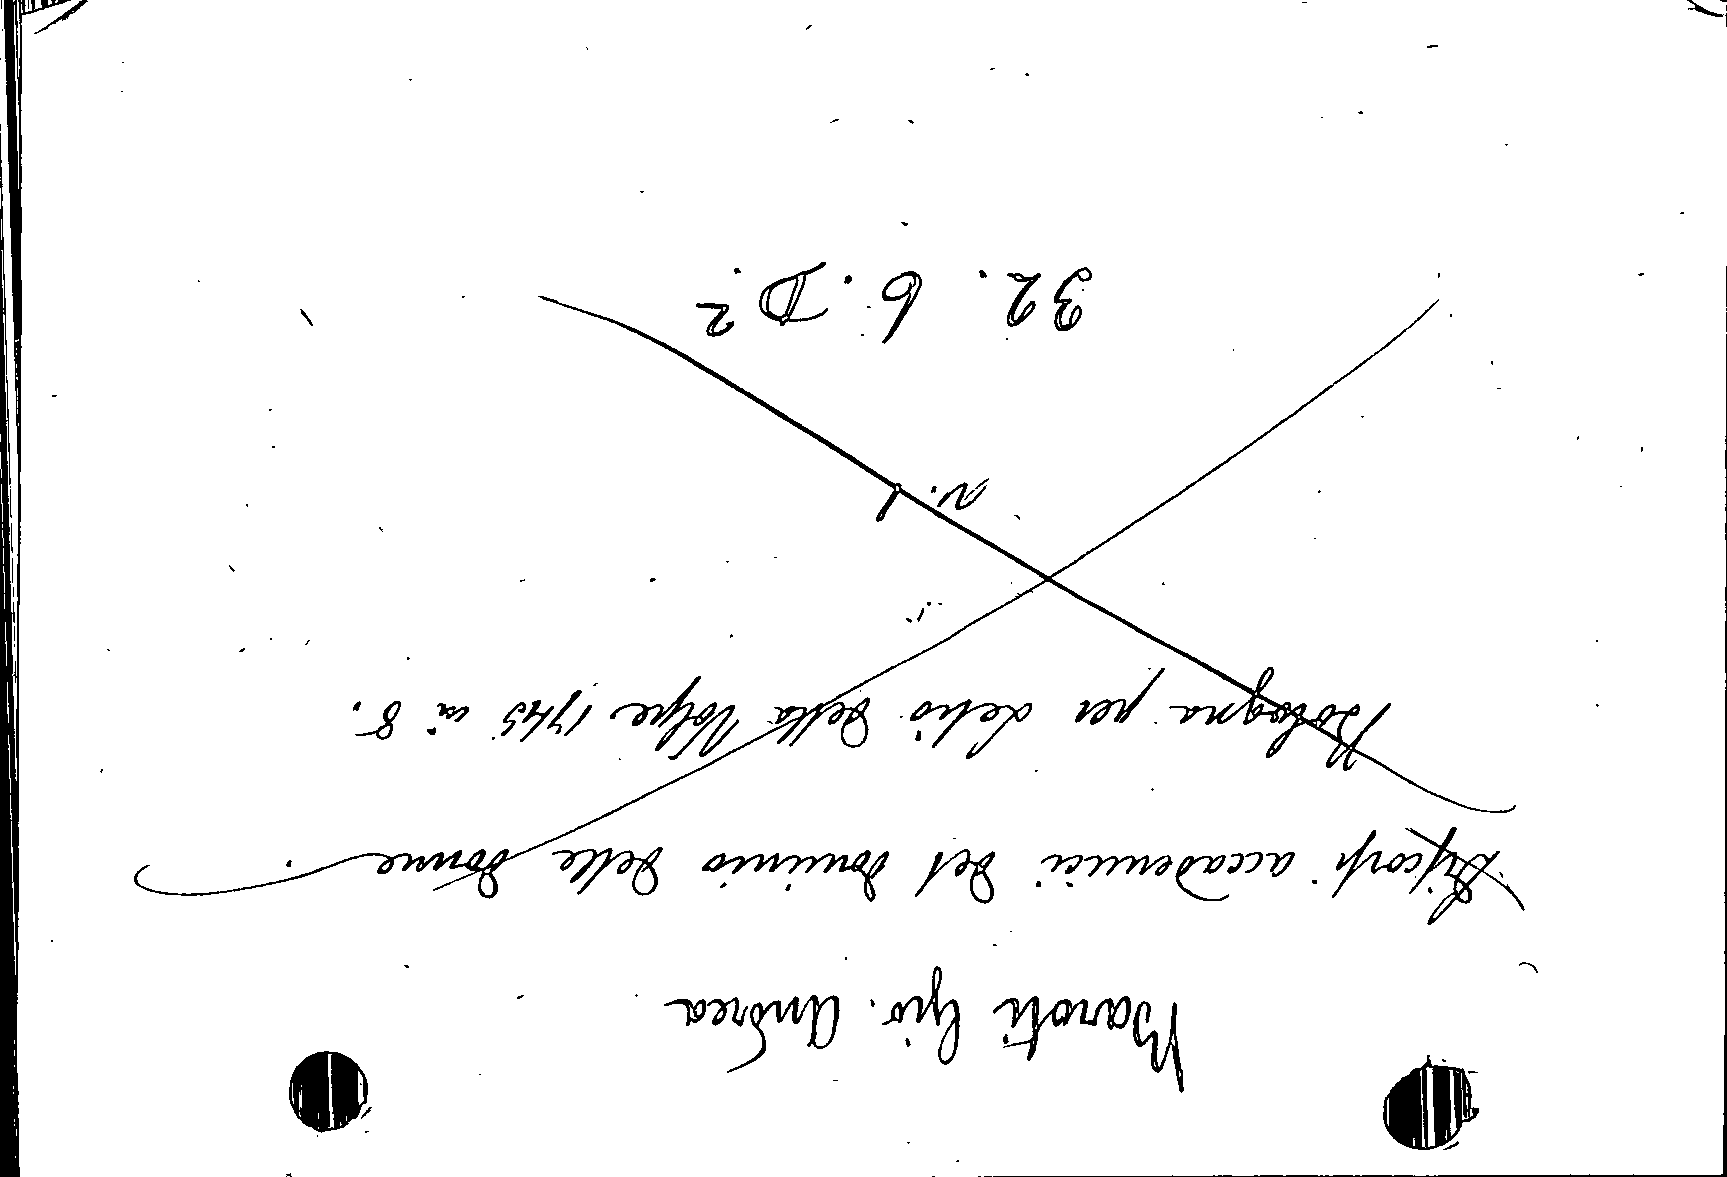 Baroti Gio. Andrea
Discorsi accademici del dominio delle donne.
Bologna per Lelio della Volpe 1745 in 8.
N. 1
32. 6. D. 2